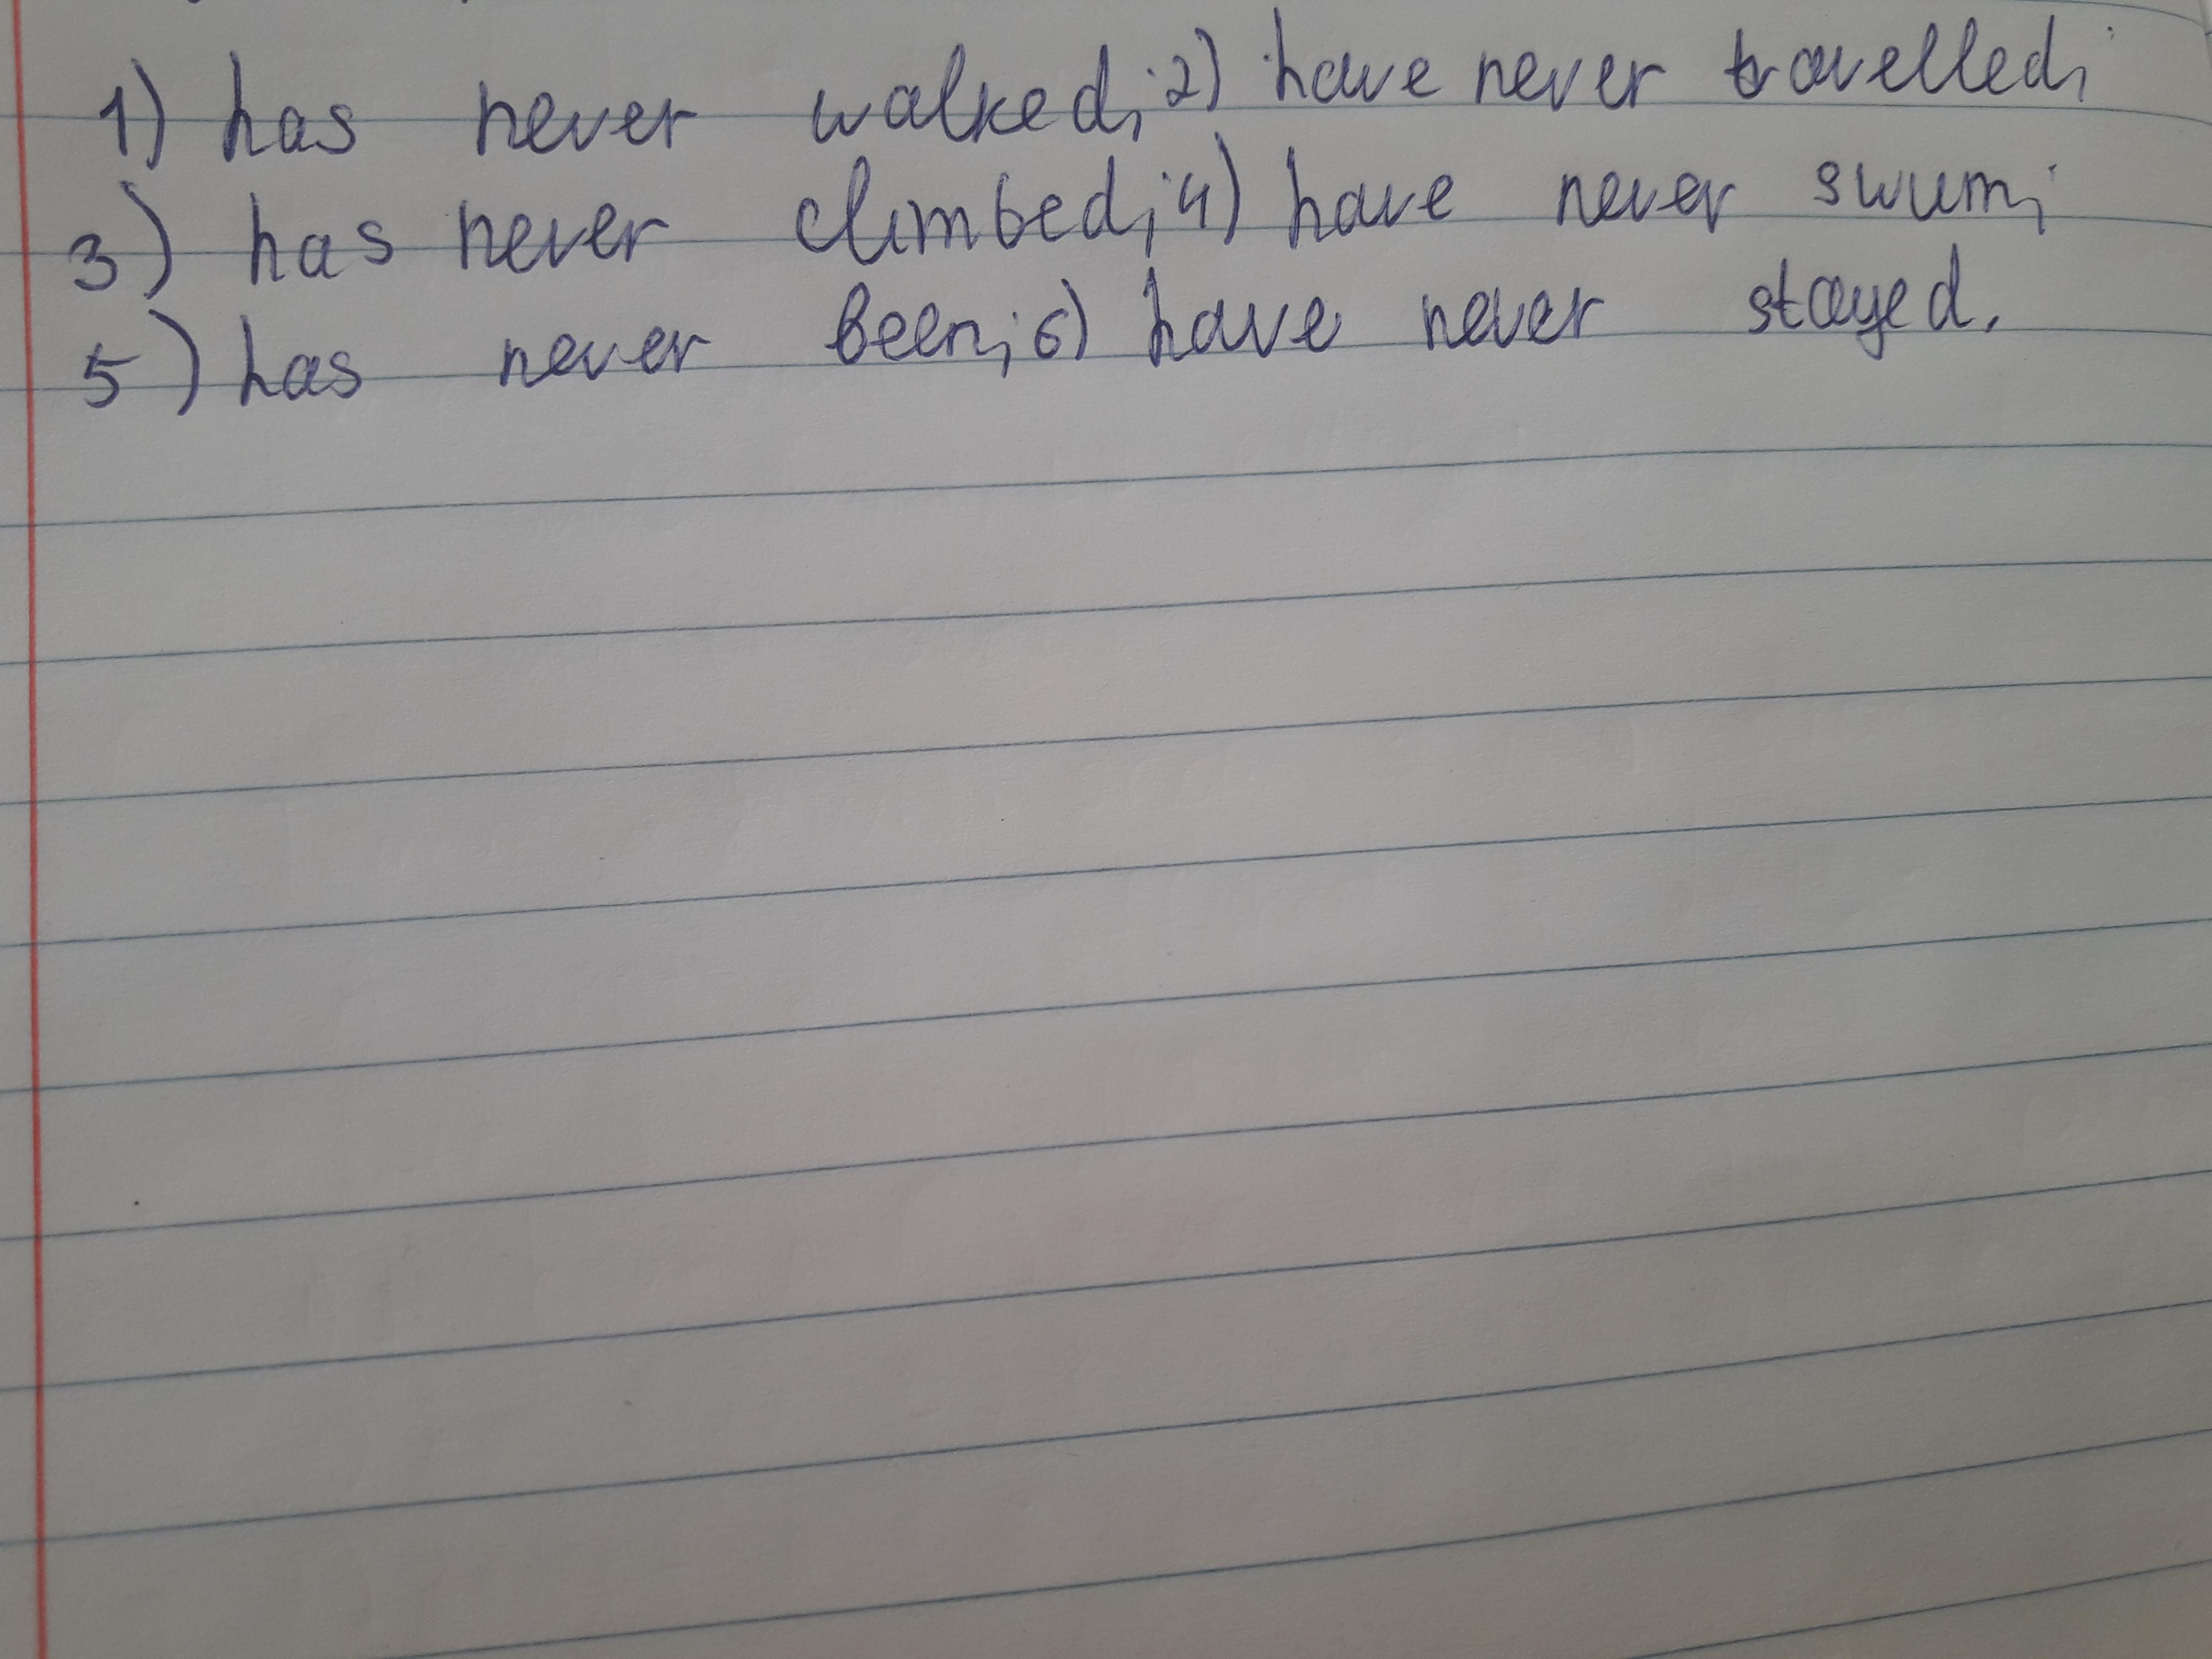 1) has never walked; 2) have never travelled;
3) has never climbed; 4) have never swum;
5) has never been; 6) have never stayed.